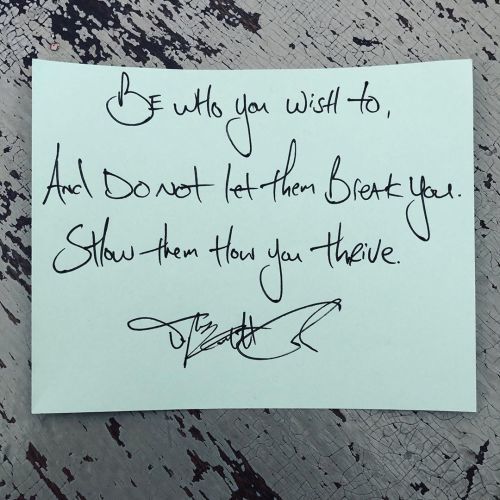 BE wHo you wisH to,
And Do Not let them BreAk You.
SHow them How you thrive.